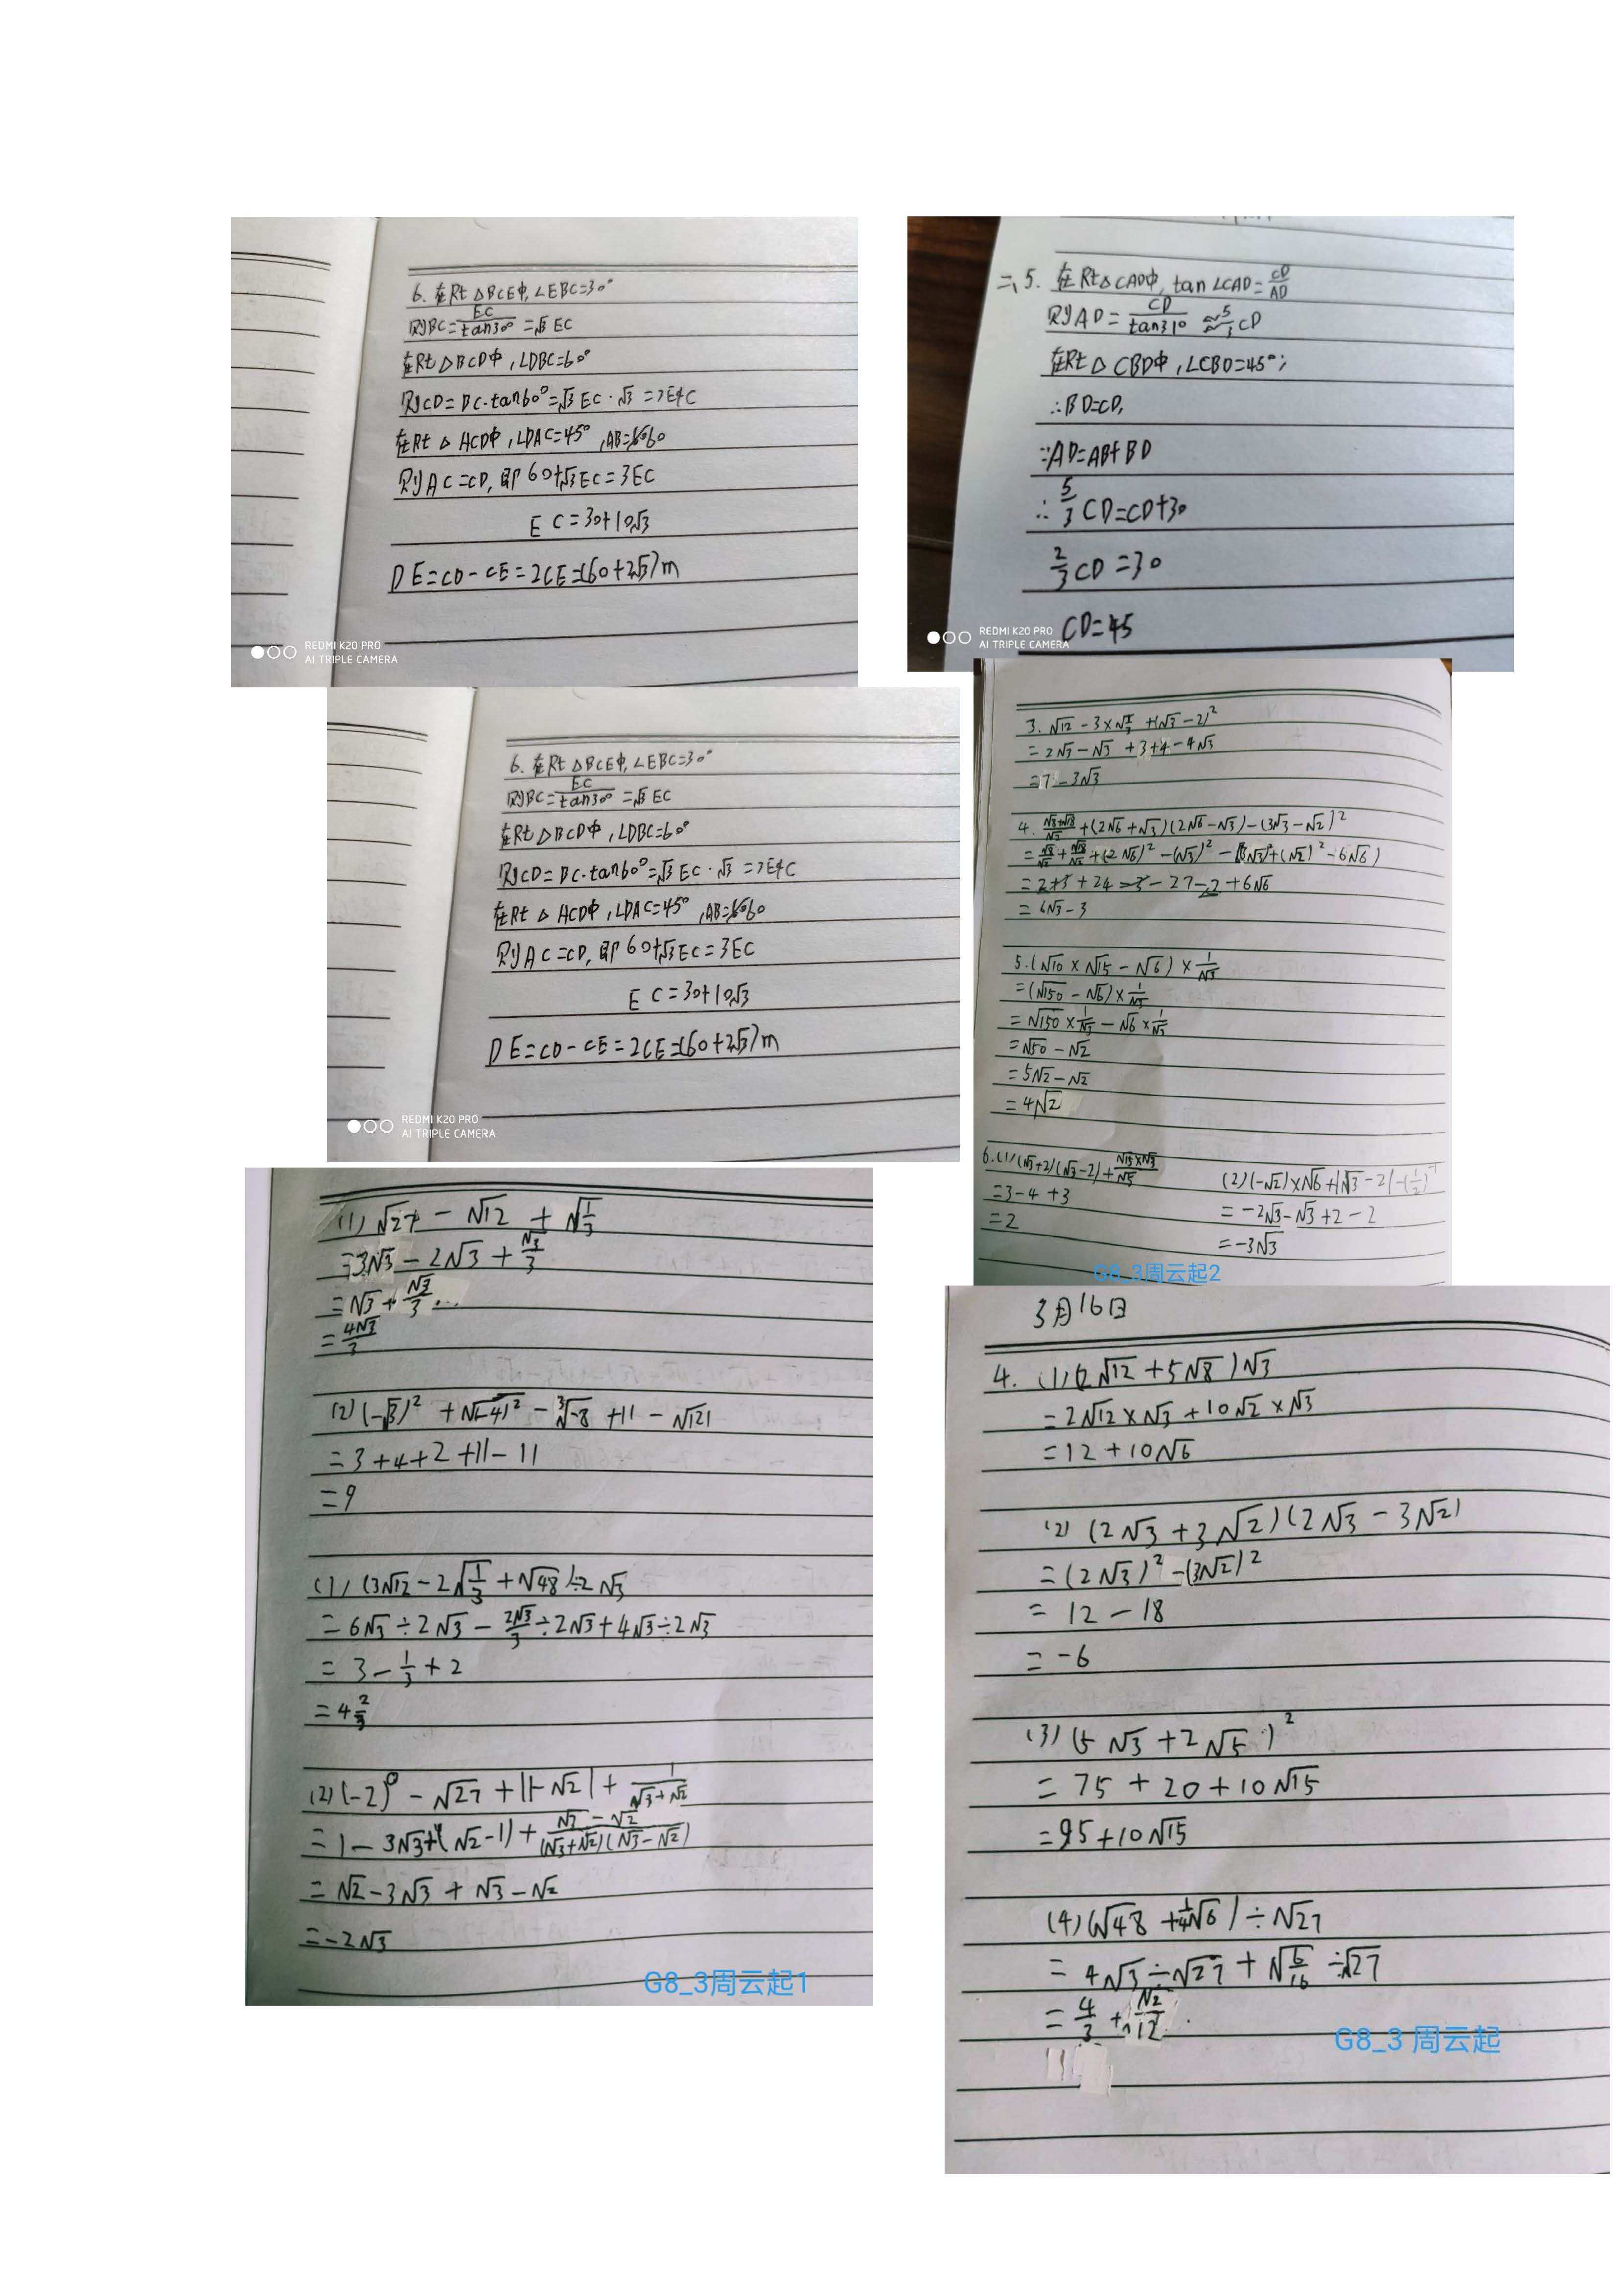 6. 在Rt△BCE中,∠EBC=30°
则BC=EC/tan30°=√3EC
在Rt△BCD中,∠DBC=60°
则CD=BC·tan60°=√3EC·√3=3EC
在Rt△ACD中,∠DAC=45°,AB=60
则AC=CD,即60+√3EC=3EC
EC=30+10√3
DE=CD-CE=2CE=(60+2√3)m
REDMI K20 PRO
AI TRIPLE CAMERA
二、5. 在Rt△CAD中,tan∠CAD=CD/AD
则AD=CD/tan31°≈5/3CD
在Rt△CBD中,∠CBD=45°;
∴BD=CD,
∵AD=AB+BD
∴5/3CD=CD+30
2/3CD=30
CD=45
REDMI K20 PRO
AI TRIPLE CAMERA
6. 在Rt△BCE中,∠EBC=30°
则BC=EC/tan30°=√3EC
在Rt△BCD中,∠DBC=60°
则CD=BC·tan60°=√3EC·√3=3EC
在Rt△ACD中,∠DAC=45°,AB=60
则AC=CD,即60+√3EC=3EC
EC=30+10√3
DE=CD-CE=2CE=(60+2√3)m
REDMI K20 PRO
AI TRIPLE CAMERA
3. √12-3×√(1/3)+(√3-2)²
=2√3-√3+3+4-4√3
=7-3√3
4. (√8+√18)/√2+(2√6+√3)(2√6-√3)-(3√3-√2)²
=√8/√2+√18/√2+(2√6)²-(√3)²-[(3√3)²+(√2)²-6√6)
=2+3+24-3-27-2+6√6
=6√3-3
5.(√10×√15-√6)×1/√3
=(√150-√6)×1/√3
=√150×1/√3-√6×1/√3
=√50-√2
=5√2-√2
=4√2
6.(1)(√3+2)(√3-2)+(√15×√3)/√5
=3-4+3
=2
(2)(-√2)×√6+|√3-2|-(1/2)⁻¹
=-2√3-√3+2-2
=-3√3
G8_3周云起2
(1)√27-√12+√(1/3)
=3√3-2√3+√3/3
=√3+√3/3
=4√3/3
(2)(-√3)²+√(-4)²-³√-8+11-√121
=3+4+2+11-11
=9
(1)(3√12-2√(1/3)+√48)÷2√3
=6√3÷2√3-2√3/3÷2√3+4√3÷2√3
=3-1/3+2
=4 2/3
(2)(-2)⁰-√27+|1-√2|+1/(√3+√2)
=1-3√3+(√2-1)+(√3-√2)/((√3+√2)(√3-√2))
=√2-3√3+√3-√2
=-2√3
G8_3周云起1
3月16日
4. (1)(2√12+5√8)√3
=2√12×√3+10√2×√3
=12+10√6
(2)(2√3+3√2)(2√3-3√2)
=(2√3)²-(3√2)²
=12-18
=-6
(3)(5√3+2√5)²
=75+20+10√15
=95+10√15
(4)(√48+1/4√6)÷√27
=4√3÷√27+√(6/16)÷√27
=4/3+√2/12
G8_3 周云起